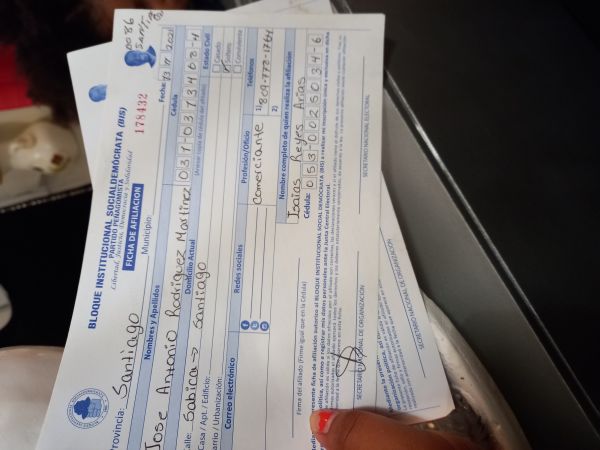 BLOQUE INSTITUCIONAL SOCIALDEMÓCRATA (BIS)
PARTIDO PEÑAGOMISTA
Libertad, Justicia, Democracia y Solidaridad
FICHA DE AFILIACION
178432
0086
Santi
Provincia: Santiago Municipio:
Fecha: 13 11 2021
Nombres y Apellidos
Cédula
Jose Antonio Rodriguez Martinez 037-0373408-4
(Anexar copia de cédula del afiliado)
Domicilio Actual
Estado Civil
Calle: Sabica → Santiago
Casado
Casa / Apt. / Edificio:
Soltero
Barrio / Urbanización:
Correo electrónico
Redes sociales
Profesión/Oficio
Teléfonos
Comerciante
1) 809-778-1764
2)
Nombre completo de quien realiza la afiliación
Isaias Reyes Arias
Firma del afiliado (Firme igual que en la Cedula)
Cédula: 053-0025034-6
SECRETARIO NACIONAL DE ORGANIZACIÓN
SECRETARIO NACIONAL ELECTORAL
SECRETARIO NACIONAL DE ORGANIZACIÓN